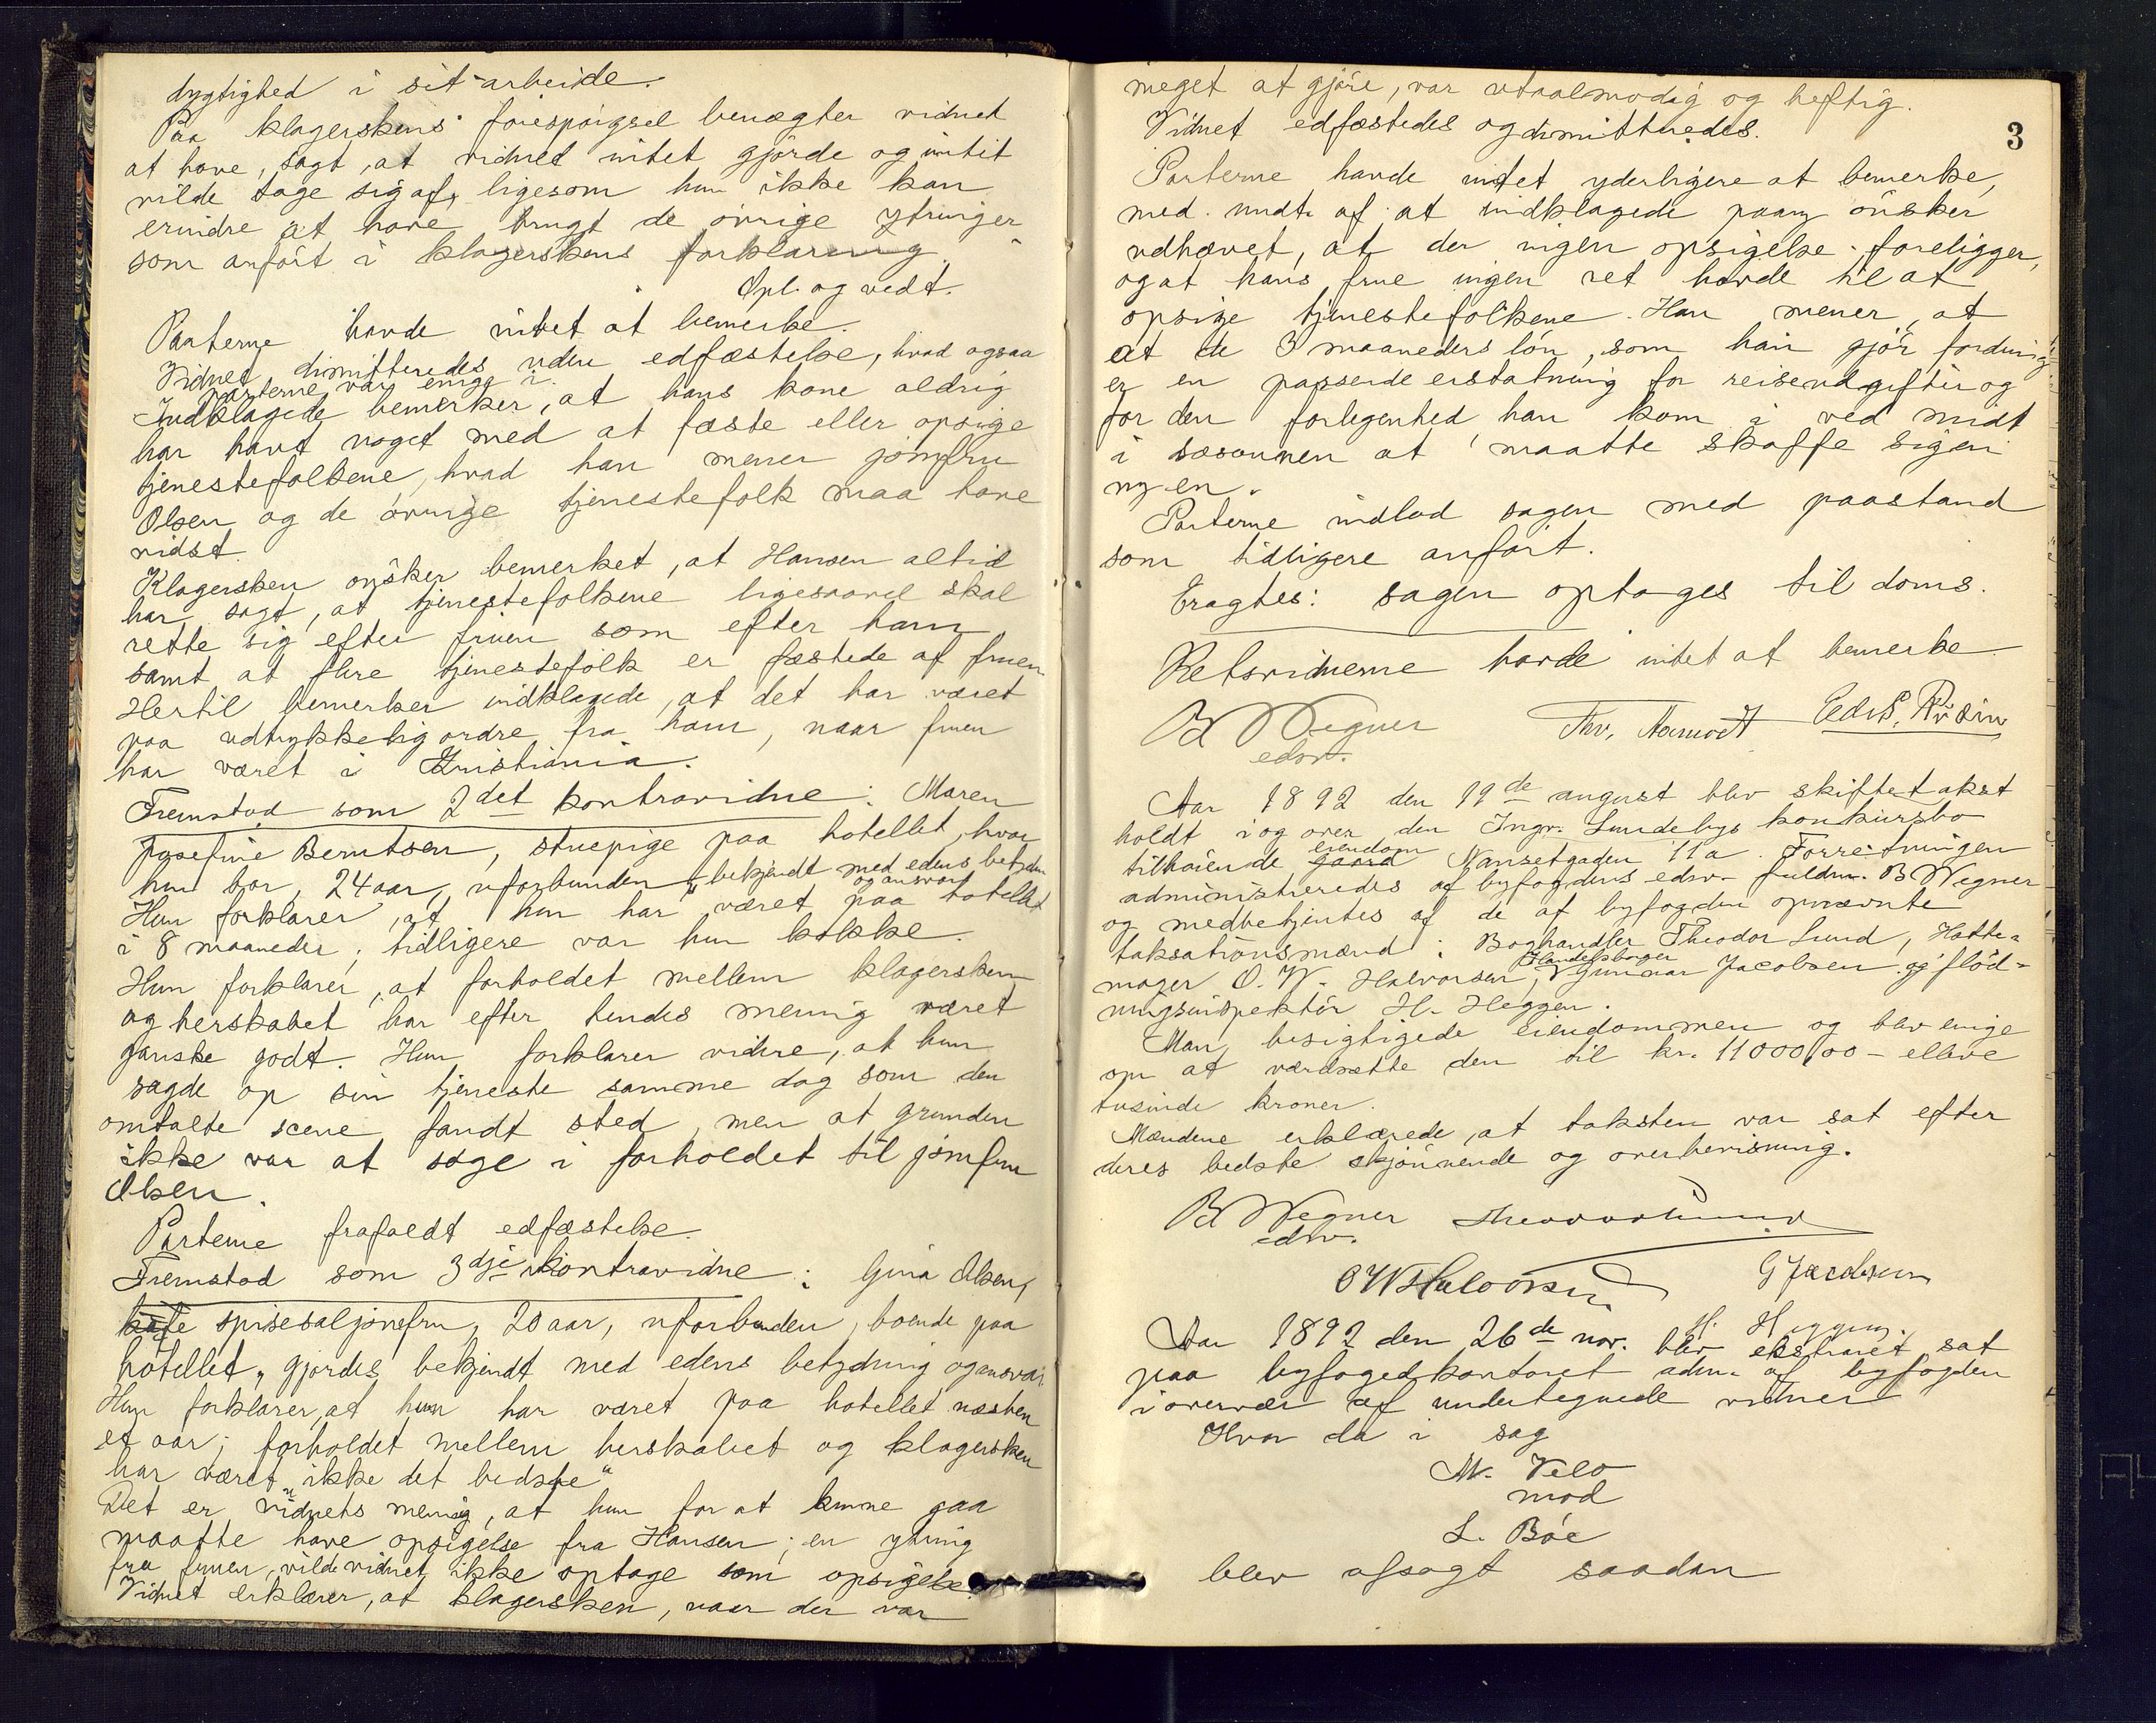 dygtighed i sit arbeide.
Paa klagerskens forespørgsel benægter vidnet
at have sagt, at vidnet intet gjørde og intet
vilde tage sig af, ligesom hun ikke kan
erindre at have brugt de øvrige ytringer
som anført i klagerskens forklaring.
Opl. og vedt.
Parterne havde intet at bemerke.
Vidnet dimitteredes uden edfæstelse, hvad ogsaa
parterne var enige i.
Indklagede bemerker, at hans kone aldrig
har havt noget med at fæste eller opsige
tjenestefolkene, hvad han mener jomfru
Olsen og de øvrige tjenestefolk maa have
vidst.
Klagersken ønsker bemerket, at Hansen altid
har sagt, at tjenestefolkene ligesaavel skal
rette sig efter fruen som efter ham
samt at flere tjenestefolk er fæstede af fruen
Hertil bemerker indklagede, at det har været
paa udtrykkelig ordre fra ham, naar fruen
har været i Kristiania.
Fremstod som 2det kontravidne: Maren
Josefine Berntsen, stuepige paa hotellet, hvor
hun bor, 24 aar, uforbunden, bekjendt med edens betydn
og ansvar
Hun forklarer, at hun har været paa hotellet
i 8 maaneder; tidligere var hun kokke.
Hun forklarer, at forholdet mellem klagersken
og herskabet har efter hendes mening været
ganske godt. Hun forklarer videre, at hun
sagde op sin tjeneste samme dag som den
omtalte scene fandt sted, men at grunden
ikke var at søge i forholdet til jomfru
Olsen.
Parterne frafaldt edfæstelse.
Fremstod som 3dje kontravidne: Gina Olsen,
spisesaljomfru, 20 aar, uforbunden, boende paa
hotellet, gjordes bekjendt med edens betydning og ansvar
Hun forklarer, at hun har været paa hotellet næsten
et aar; forholdet mellem herskabet og klagersken
har været "ikke det bedste"
Det er vidnets mening, at hun for at kunne gaa
maatte have opsigelse fra Hansen; en ytring
fra fruen, vilde vidnet ikke optage som opsigelse.
Vidnet erklærer, at klagersken, naar der var
3
meget at gjøre, var utaalmodig og heftig.
Vidnet edfæstedes og dimitteredes.
Parterne havde intet yderligere at bemerke,
med undt. af at indklagede paany ønsker
udhævet, at der ingen opsigelse foreligger,
og at hans frue ingen ret havde til at
opsige tjenestefolkene. Han mener, at
at de 3 maaneders løn, som han gjør fordring
er en passende erstatning for reiseudgifter og
for den forlegenhed han kom i ved midt
i sæsonnen at maatte skaffe sig en
ny en.
Parterne indlod sagen med paastand
som tidligere anført.
Eragtes: sagen optages til doms.
Retsvidnerne havde intet at bemerke
B Wegner Thv. Aamodt
edsv.
Aar 1892 den 19de august blev skiftetakst
holdt i og over den Ingv. Lundebys konkursbo
tilhørende gaard eiendom Nansetgaden 11a. Forretningen
administreredes af byfogdens edsv. fuldm. B Wegner
og medbetjentes af de af byfogden opnævnte
taksationsmænd: Boghandler Theodor Lund, Hatte-
mager O. W. Halvorsen, Handelsborger Gunnar Jacobsen og flød-
ningsinspektør H. Heggen.
Man besigtigede eiendommen og blev enige
om at værdsætte den til kr. 11000,00 - elleve
tusinde kroner.
Mændene erklærede, at taksten var sat efter
deres bedste skjønnende og overbevisning.
B Wegner Theodor Lund
edsv.
O W Halvorsen G Jacobsen
H. Heggen.
Aar 1892 den 26de nov. blev ekstraret sat
paa byfogedkontoret adm. af byfogden
i overvær af undertegnede vidner
Hvor da i sag
M. Velo
mod
L. Bøe
blev afsagt saadan